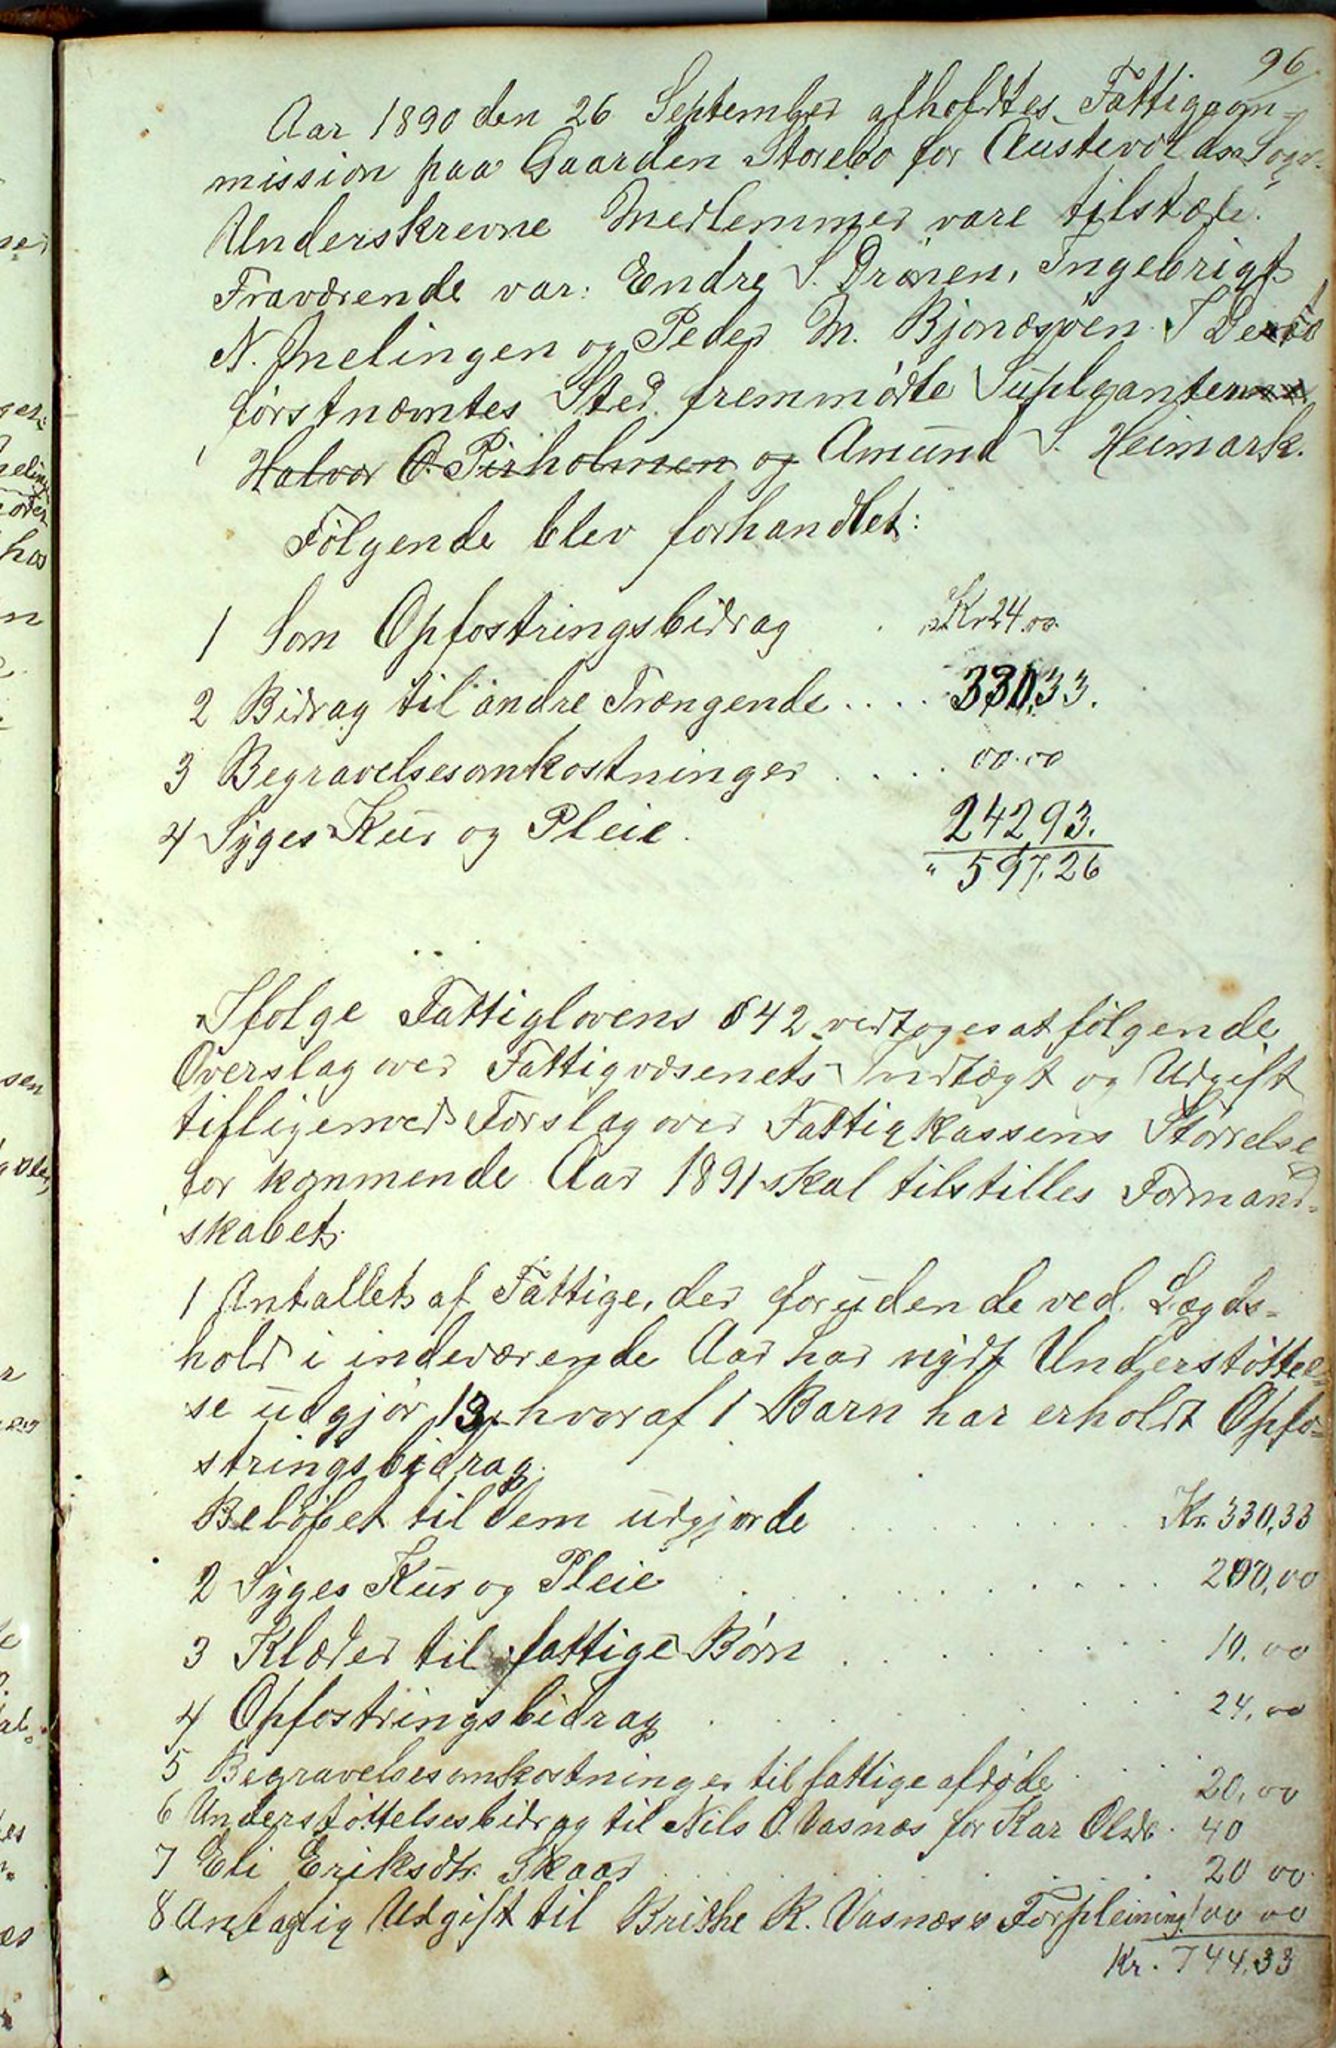 96.
Aar 1890 den 26 September afholdtes Fattigcom-
mission paa Gaarden Storebø for Austevolden Sogn.
Underskrevne Medlemmer vare tilstæde.
Fraværende var: Endre S. Drønen, Ingebrigt
N. Melingen og Peder M. Bjonæsøen. I
førstnæmtes Sted fremmødte Supleanten
Halvor O. Pirholmen og Amund S. Heimark.
Følgende blev forhandlet:
1 Som Opfostringsbidrag . Kr 24.00.
2 Bidrag til andre Trængende .... 330,33.
3 Begravelsesomkostninger .... 00.00
4 Syges Kur og Pleie. 242 93.
" 597.26
Ifølge Fattiglovens § 42 vedtoges at følgende
Overslag over Fattigvæsenets Indtægt og Udgift
tilligemed Forslag over Fattigkassens Størrelse
for kommende Aar 1891 skal tilstilles Formand-
skabet.
1 Antallet af Fattige, der foruden de ved Lægds-
hold i indeværende Aar har nydt Understøttel-
se udgjør 13, hvoraf 1 Barn har erholdt Opfo-
stringsbidrag.
Beløbet til dem udgjorde Kr. 330,33
2 Syges Kur og Pleie 200,00
3 Klæder til fattige Børn 10.00
4 Opfostringsbidrag 24,00
5 Begravelsesomkostninger til fattige afdøde 20,00
6 Understøttelsesbidrag til Nils O. Vasnæs for Kar Olsdr. 40
7 Eli Eriksdtr. Skaar 20 00
8 Antagelig Udgift til Brithe R. Vasnæs's Forpleining 100 00
Kr. 744,33